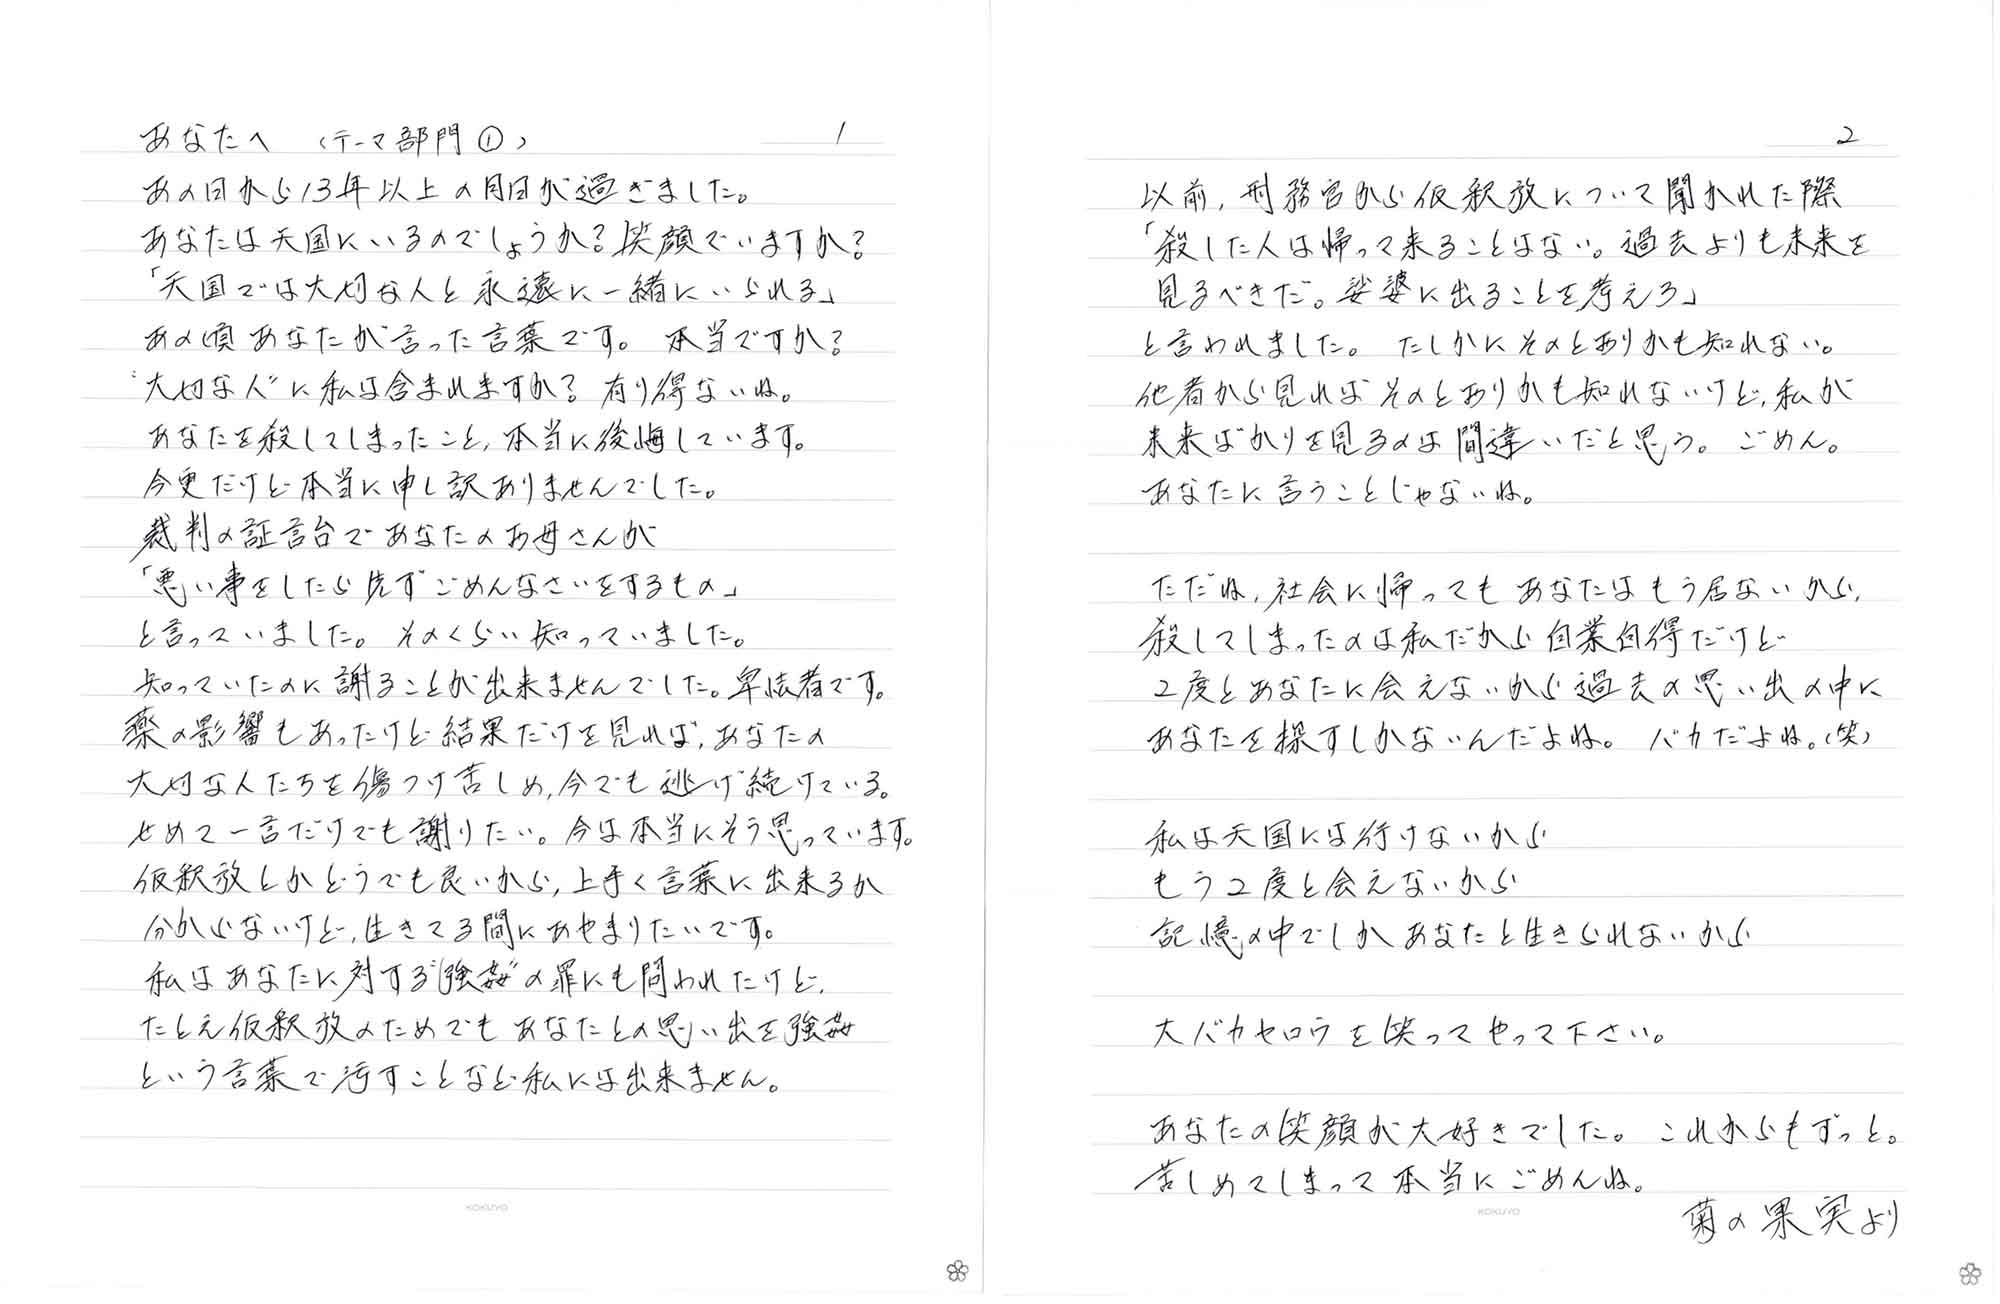 あなたへ (テーマ部門①)
1
あの日から13年以上の月日が過ぎました。
あなたは天国にいるのでしょうか?笑顔でいますか?
「天国では大切な人と永遠に一緒にいられる」
あの頃あなたが言った言葉です。 本当ですか?
"大切な人"に私は含まれますか? 有り得ないね。
あなたを殺してしまったこと,本当に後悔しています。
今更だけど本当に申し訳ありませんでした。
裁判の証言台であなたのお母さんが
「悪い事をしたら先ずごめんなさいをするもの」
と言っていました。 そのくらい知っていました。
知っていたのに謝ることが出来ませんでした。卑怯者です。
薬の影響もあったけど結果だけを見れば,あなたの
大切な人たちを傷つけ苦しめ,今でも逃げ続けている。
せめて一言だけでも謝りたい。今は本当にそう思っています。
仮釈放とかどうでも良いから,上手く言葉に出来るか
分からないけど,生きてる間にあやまりたいです。
私はあなたに対する"強姦"の罪にも問われたけど,
たとえ仮釈放のためでもあなたとの思い出を強姦
という言葉で汚すことなど私には出来ません。
KOKUYO
2
以前,刑務官から仮釈放について聞かれた際
「殺した人は帰って来ることはない。過去よりも未来を
見るべきだ。娑婆に出ることを考えろ」
と言われました。 たしかにそのとおりかも知れない。
他者から見ればそのとおりかも知れないけど,私が
未来ばかりを見るのは間違いだと思う。 ごめん。
あなたに言うことじゃないね。
ただね,社会に帰ってもあなたはもう居ないから,
殺してしまったのは私だから自業自得だけど
2度とあなたに会えないから過去の思い出の中に
あなたを探すしかないんだよね。 バカだよね。(笑)
私は天国には行けないから
もう2度と会えないから
記憶の中でしかあなたと生きられないから
大バカヤロウを笑ってやって下さい。
あなたの笑顔が大好きでした。 これからもずっと。
苦しめてしまって本当にごめんね。
KOKUYO
菊の果実より